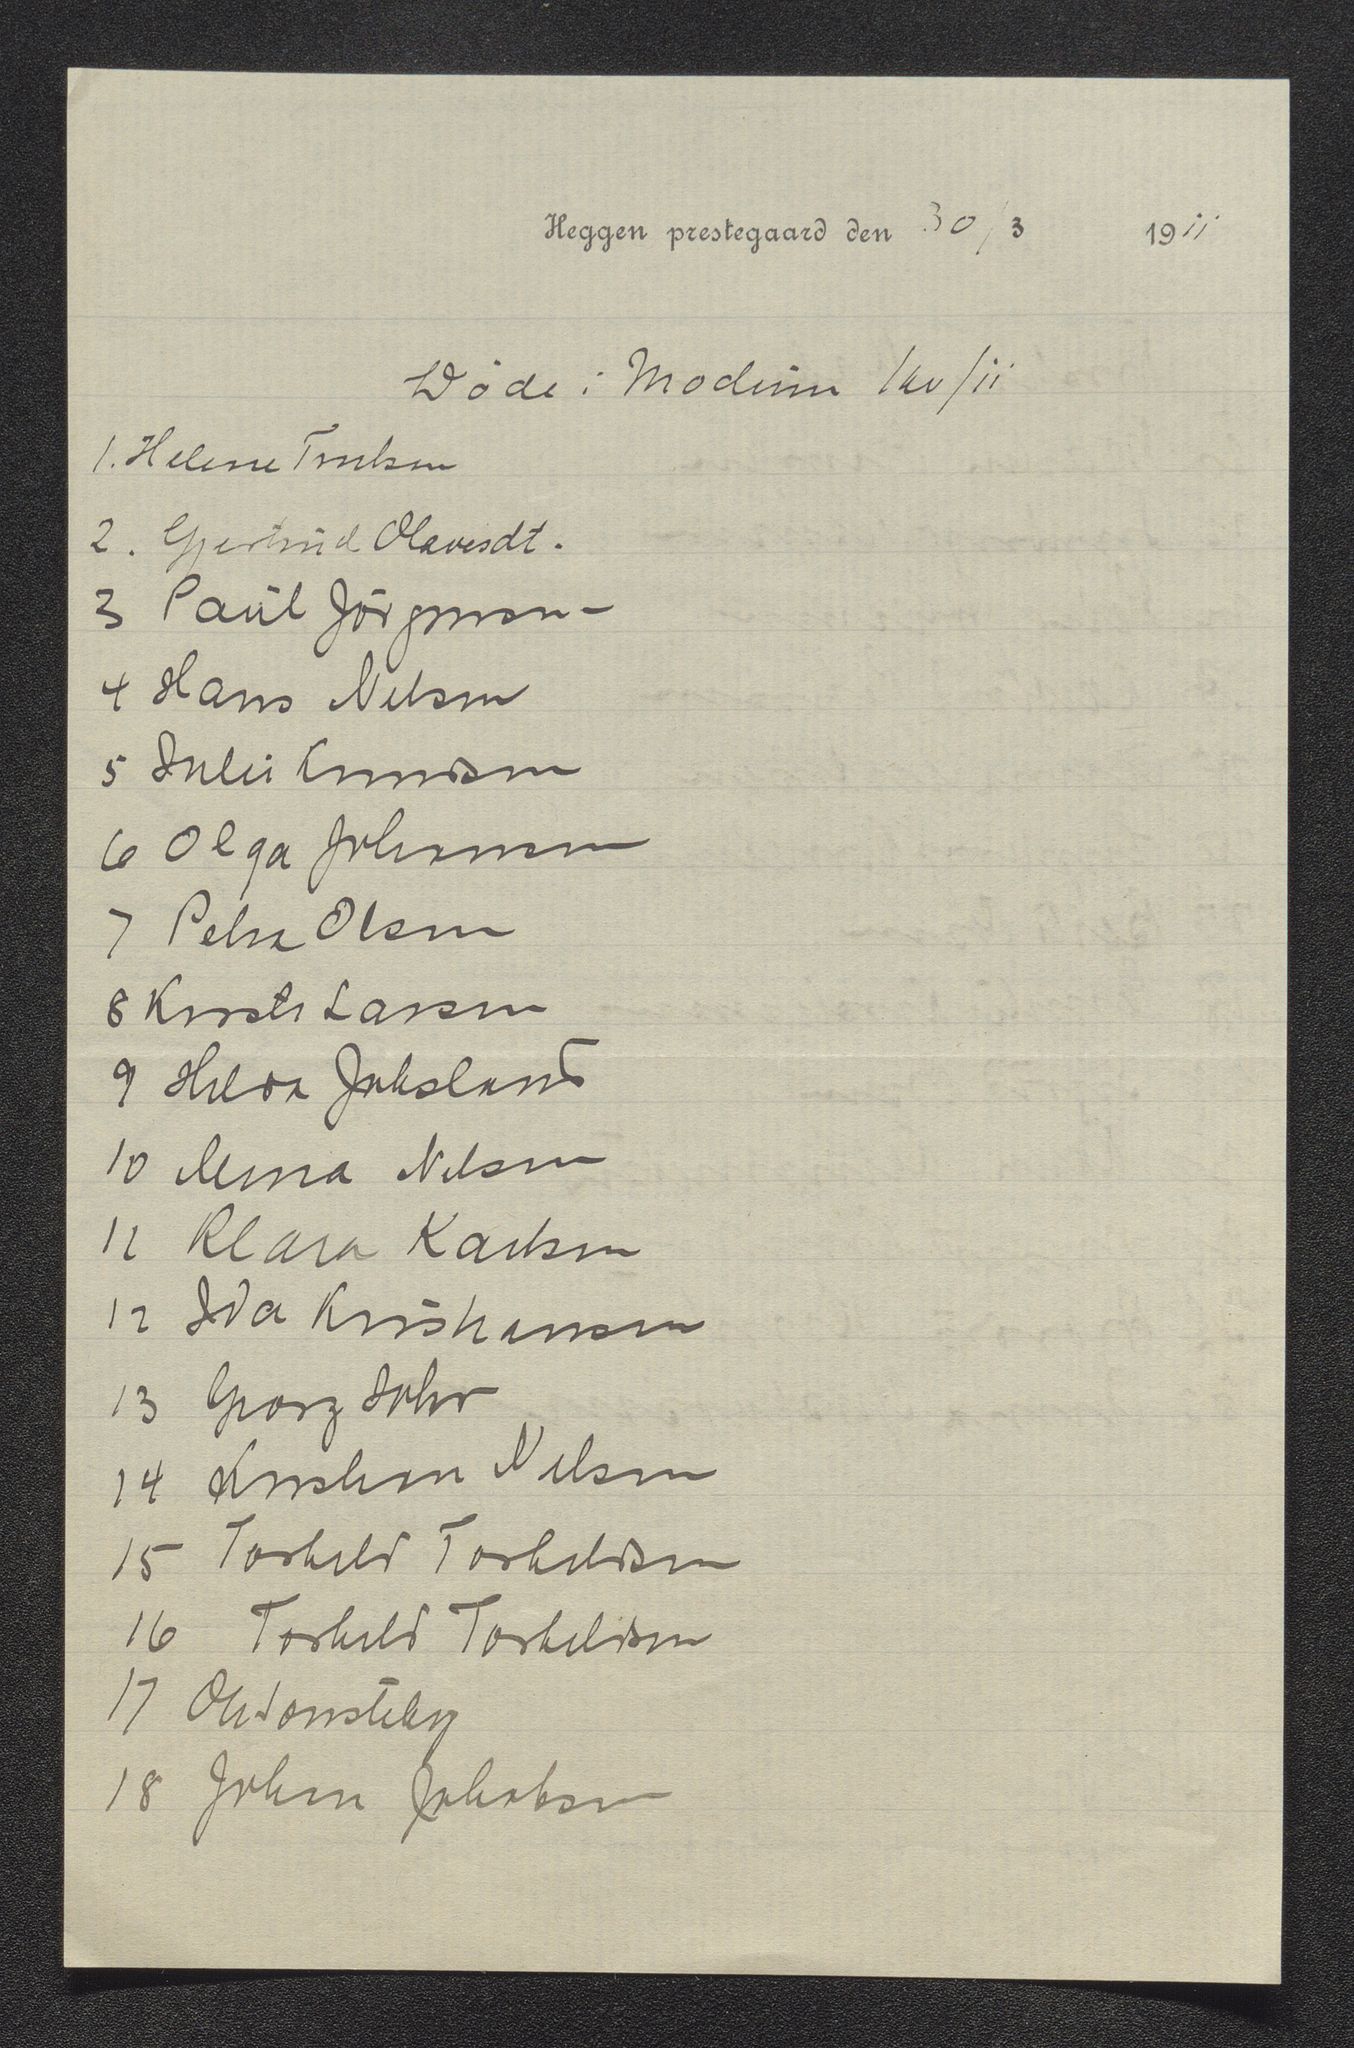 Heggen prestegaard den 30/3 1911
Døde i Modum 1kv/11
1. Helene Trulsen
2. Gjertrud Olavesdt.
3 Paul Jörgensen
4 Hans Nilsen
5 Julie Knudsen
6 Olga Johannesen
7 Petra Olsen
8 Kirsti Larsen
9 Hilda Joksland
10 Anna Nilsen
11 Klara Karlsen
12 Ida Kristiansen
13 Georg
14 Kristian Nilsen
15 Torkild Torkildsen
16 Torkild Torkildsen
17
18 Johan Jakobsen